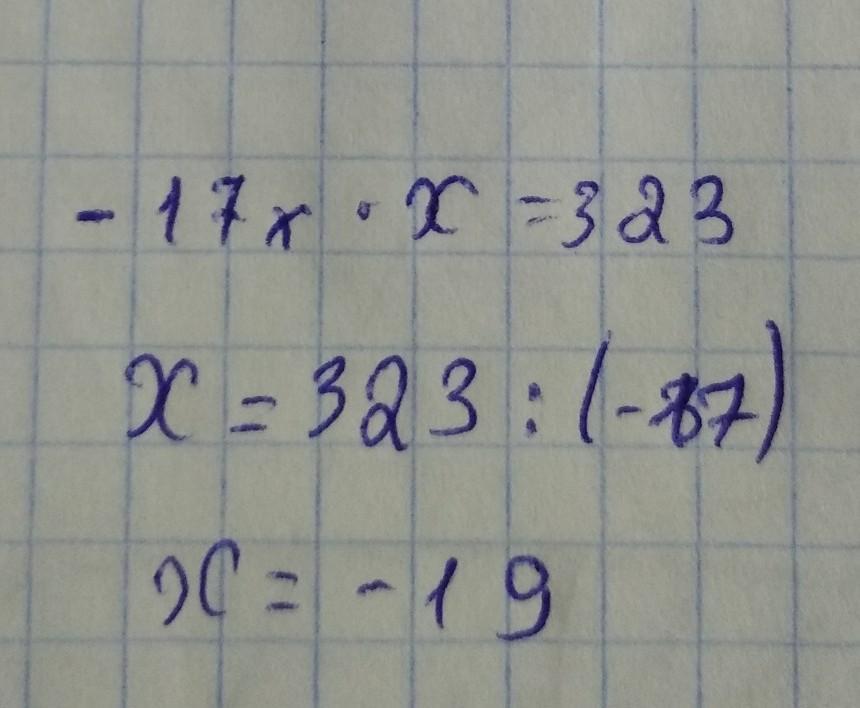 -17x · x = 323
x = 323 : (-17)
x = -19